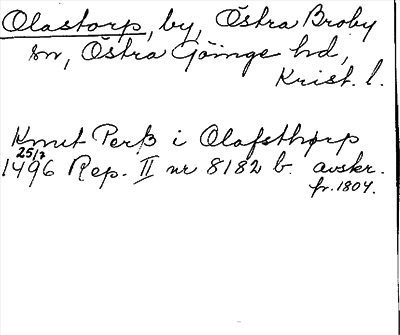 Olastorp, by, Östra Broby
sn, Östra Göinge hd,
Krist. l.
Knut Perß i Olafsthorp
25/7
1496 Rep. II nr 8182 b. avskr.
fr. 1804.